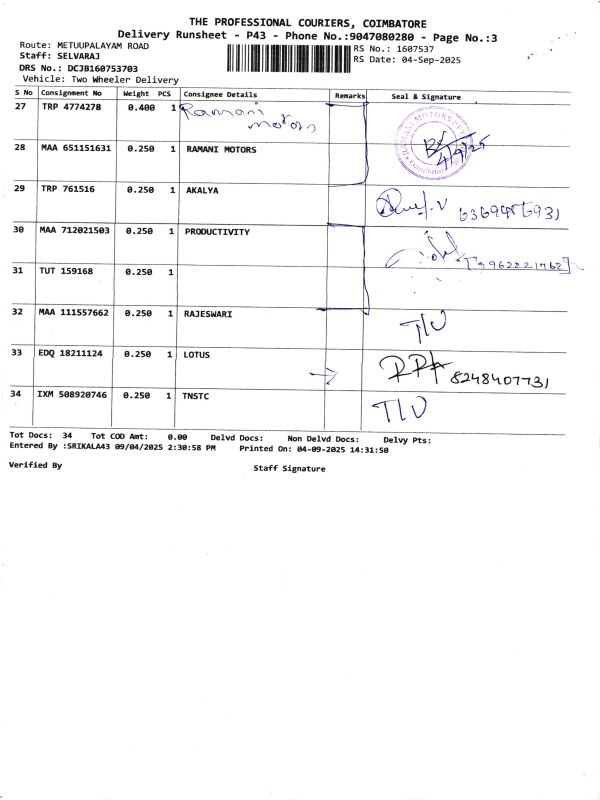 THE PROFESSIONAL COURIERS, COIMBATORE
Delivery Runsheet - P43 - Phone No.:9047080280 - Page No.:3
Route: METUUPALAYAM ROAD RS No.: 1607537
Staff: SELVARAJ RS Date: 04-Sep-2025
DRS No.: DCJB160753703
Vehicle: Two Wheeler Delivery
S No Consignment No Weight PCS Consignee Details Remarks Seal & Signature
27 TRP 4774278 0.400 1 Ramani Motors
28 MAA 651151631 0.250 1 RAMANI MOTORS 4/9/25
29 TRP 761516 0.250 1 AKALYA
30 MAA 712021503 0.250 1 PRODUCTIVITY
31 TUT 159168 0.250 1
32 MAA 111557662 0.250 1 RAJESWARI T/U
33 EDQ 18211124 0.250 1 LOTUS 8248407731
34 IXM 508920746 0.250 1 TNSTC T/U
Tot Docs: 34 Tot COD Amt: 0.00 Delvd Docs: Non Delvd Docs: Delvy Pts:
Entered By :SRIKALA43 09/04/2025 2:30:58 PM Printed On: 04-09-2025 14:31:50
Verified By Staff Signature